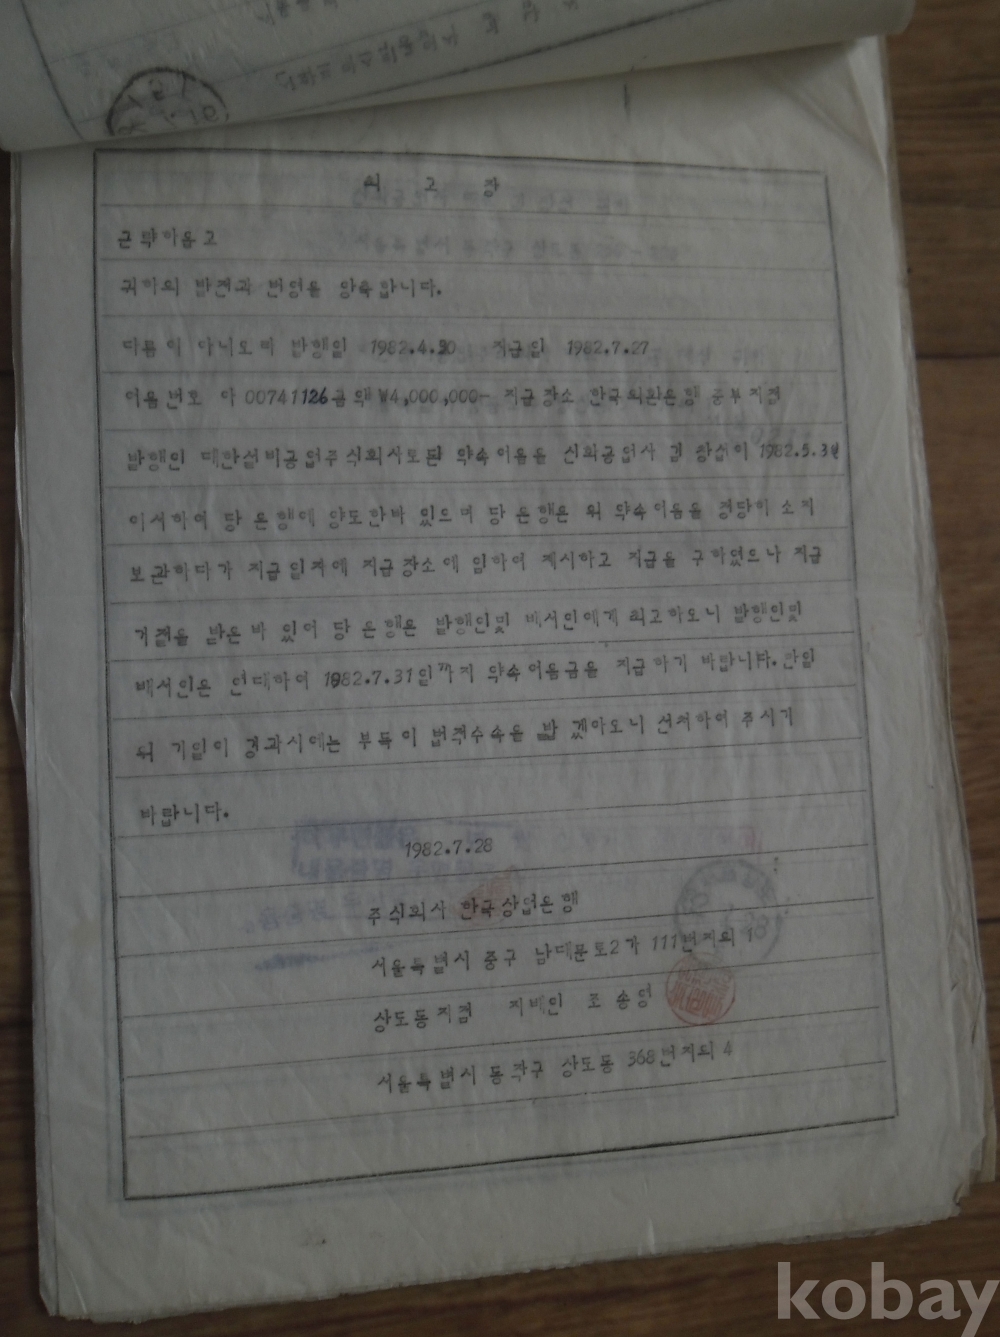 최 고 장
근략하옵고
귀하의 발전과 번영을 앙축합니다.
다름이 아니오며 발행일 1982.4.20 지급일 1982.7.27
어음번호 아 00741126 금액 ₩4,000,000- 지급장소 한국외환은행 중부지점
발행인 대한설비공업주식회사로된 약속어음을 신희공업사 김 창섭이 1982.5.3일
이서하여 당 은행에 양도한바 있으며 당 은행은 위 약속어음을 정당히 소지
보관하다가 지급일자에 지급장소에 임하여 제시하고 지급을 구하였으나 지급
거절을 받은바 있어 당 은행은 발행인및 배서인에게 최고하오니 발행인및
배서인은 연대하여 1982.7.31일까지 약속어음금을 지급하기 바랍니다. 만일
위 기일이 경과시에는 부득이 법적수속을 밟겠아오니 선처하여 주시기
바랍니다.
1982.7.28
주식회사 한국상업은행
서울특별시 중구 남대문로2가 111번지의 1
상도동지점 지배인 조 송영
서울특별시 동작구 상도동 368번지의 4
kobay